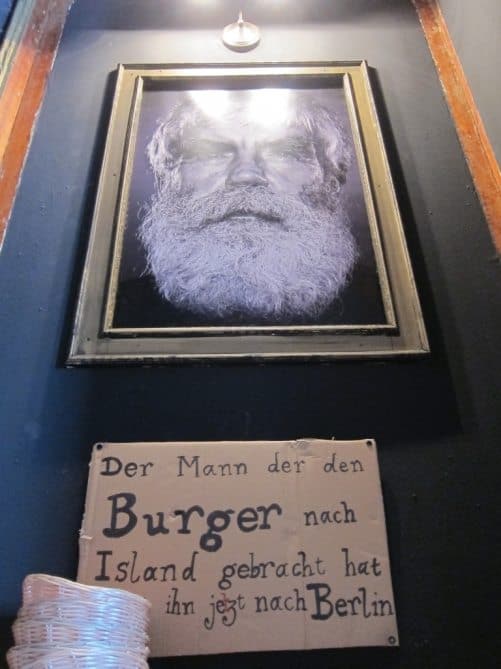 Der Mann der den
Burger nach
Island gebracht hat
ihn jetzt nach Berlin